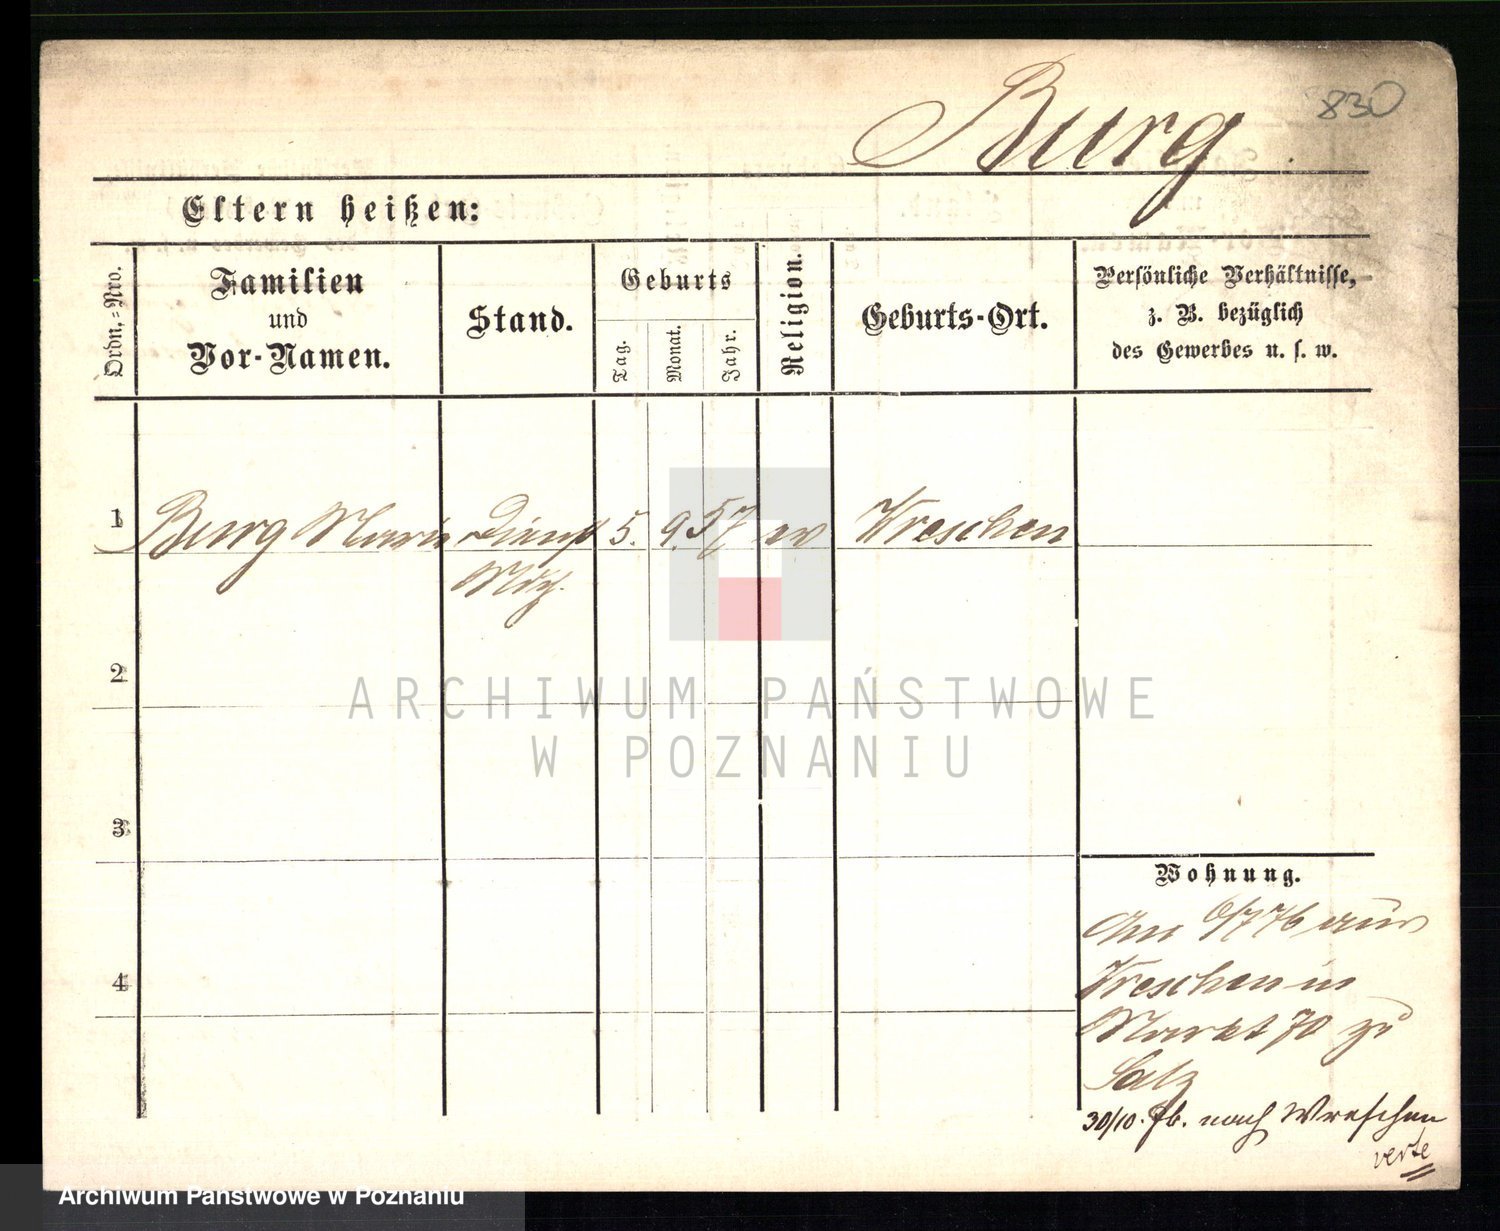 830
Burg
Eltern heißen:
Ordn.-Nro.
Familien
und
Vor-Namen.
Stand.
Geburts
Tag.
Monat.
Jahr.
Religion.
Geburts-Ort.
Persönliche Verhältnisse,
z. B. bezüglich
des Gewerbes u. s. w.
1 Burg Marie Dienst 5. 9. 57 ev Wreschen
Mdch.
2
ARCHIWUM PAŃSTWOWE
W POZNANIU
3
Wohnung.
Am 6/7 76 aus
4
Wreschen in
Markt 70 zu
Salz
30/10. 76. nach Wreschen
verte
Archiwum Państwowe w Poznaniu